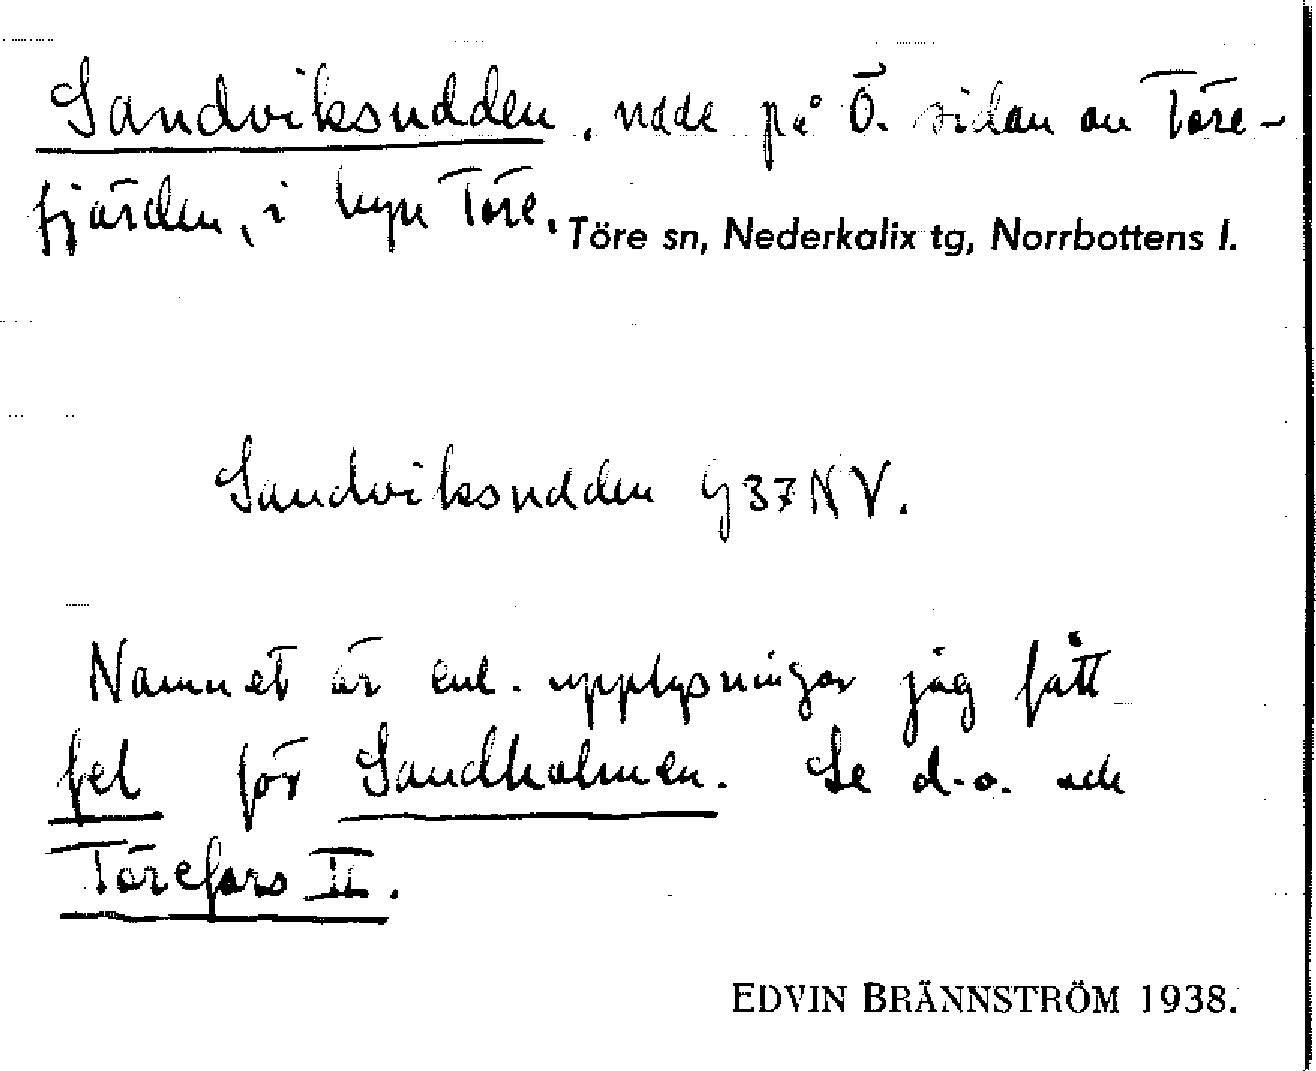 Sandviksudden, udde på Ö. sidan av Töre-
fjärden, i byn Töre. Töre sn, Nederkalix tg, Norrbottens l.
Sandviksudden G37NV.
Namnet är enl. upplysningar jag fått
fel för Sandholmen. Se d.o. och
Törefors II.
EDVIN BRÄNNSTRÖM 1938.